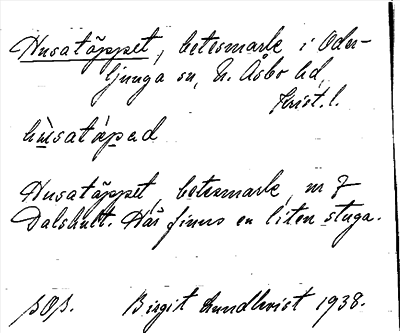 Husatäppet, betesmark i Oder-
ljunga sn, N. Åsbo hd,
Krist. l.
hùsatápəd
Husatäppet, betesmark, nr 7
Dalshult. Där finns en liten stuga.
Birgit Lundkvist 1938.